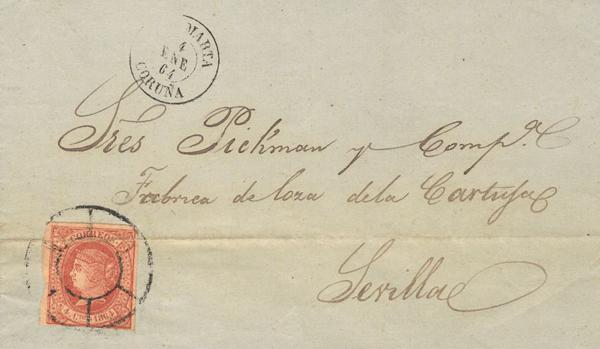 MARTA
4
ENE
64
CORUÑA
Sres Pickman y Comp.ª
Fabrica de loza de la Cartuja
Sevilla
CORREOS